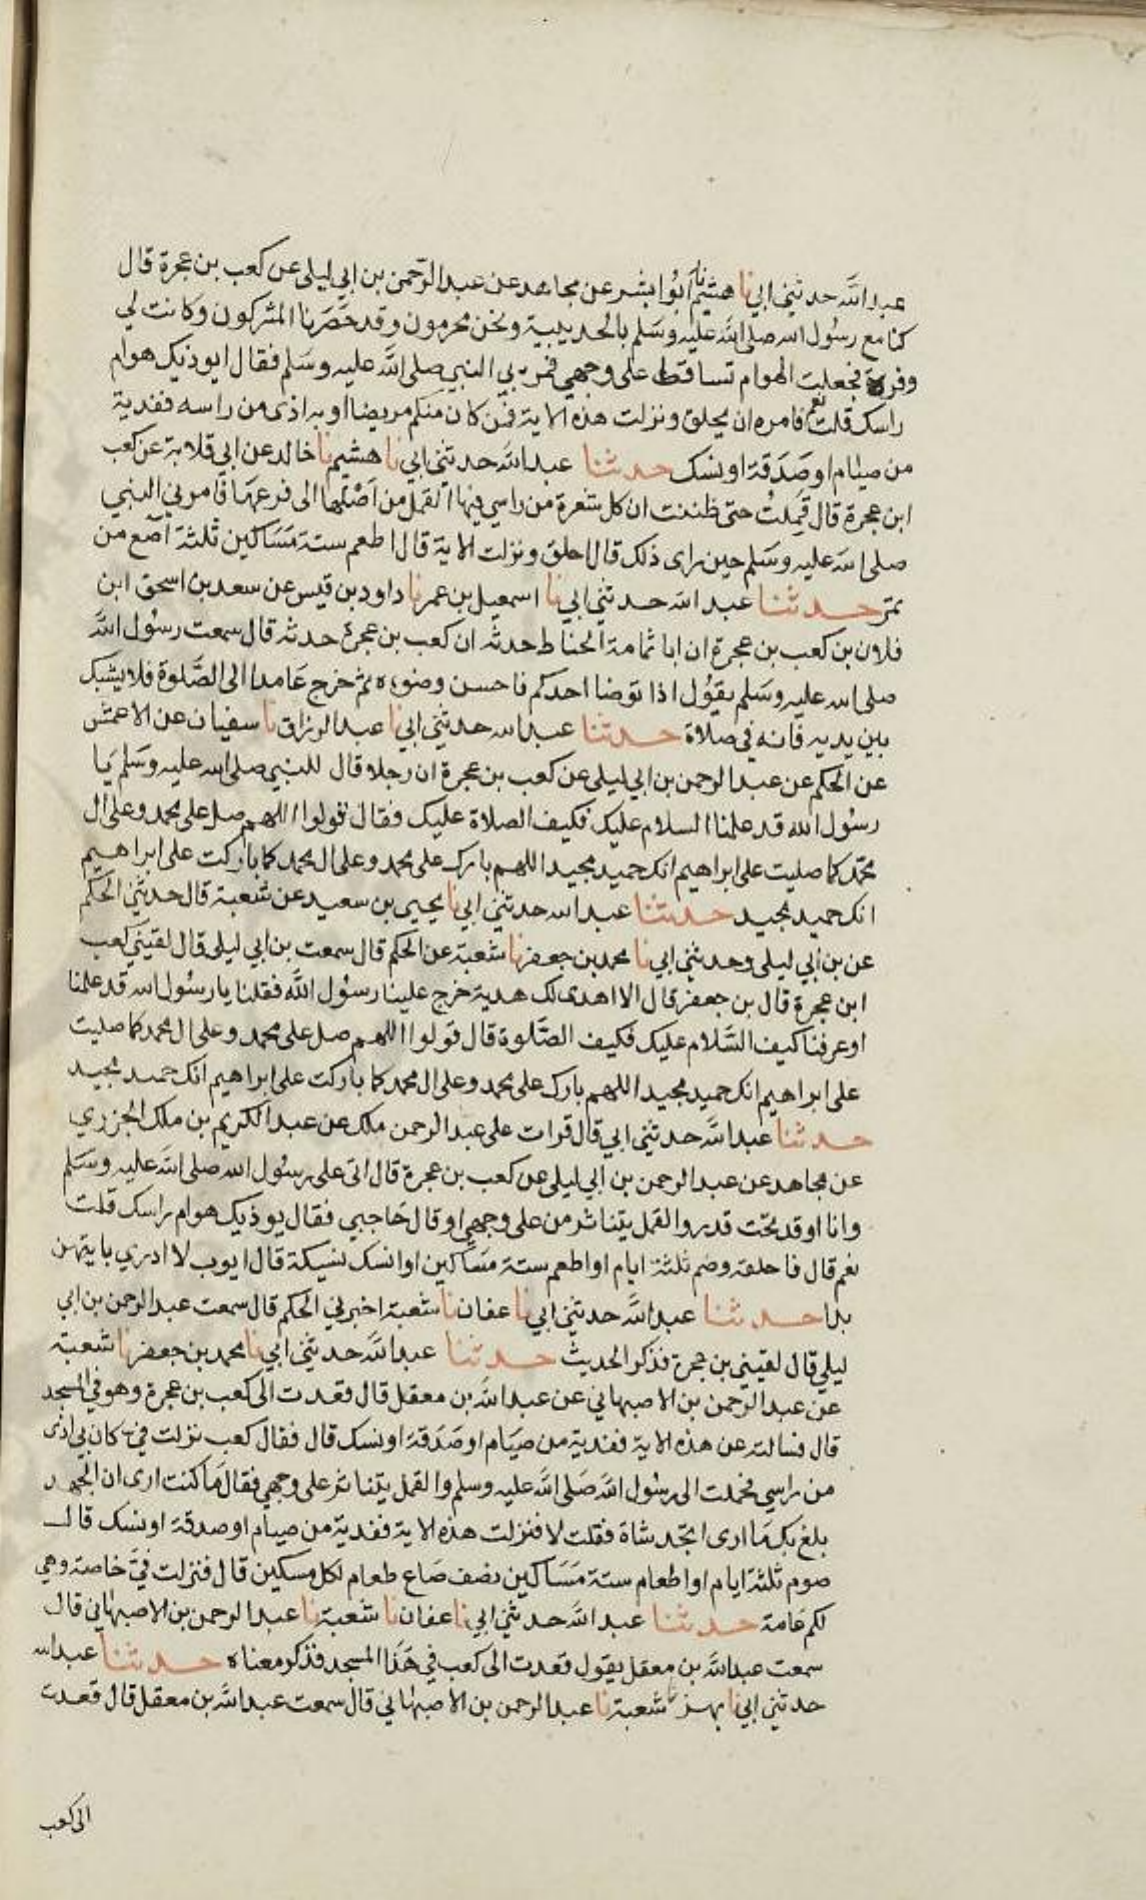 عبد الله حدثني ابي نا هشيم نا ابوا بشر عن مجاهد عن عبد الرحمن بن ابي ليلى عن كعب بن عجرة قال
كنا مع رسول الله صلى الله عليه وسلم بالحديبية ونحن محرمون وقد حصرنا المشركون وكانت لي
وفرة فجعلت الهوام تساقط على وجهي فمر بي النبي صلى الله عليه وسلم فقال ايوذيك هوام
راسك قلت نعم فامره ان يحلق ونزلت هذه الاية فمن كان منكم مريضا او به اذى من راسه ففدية
من صيام او صدقة او نسك حدثنا عبد الله حدثني ابي نا هشيم نا خالد عن ابي قلابة عن كعب
ابن عجرة قال قملت حتى ظننت ان كل شعرة من راسي فيها القمل من اصلها الى فرعها فامرني النبي
صلى الله عليه وسلم حين راى ذلك قال احلق ونزلت الاية قال اطعم ستة مساكين ثلثة آصع من
تمر حدثنا عبد الله حدثني ابي نا اسمعيل بن عمر نا داود بن قيس عن سعد بن اسحق ابن
فلان بن كعب بن عجرة ان ابا ثمامة الحناط حدثه ان كعب بن عجرة حدثه قال سمعت رسول الله
صلى الله عليه وسلم يقول اذا توضا احدكم فاحسن وضوءه ثم خرج عامدا الى الصلوة فلا يشبك
بين يديه فانه في صلاة حدثنا عبد الله حدثني ابي نا عبد الرزاق نا سفيان عن الاعمش
عن الحكم عن عبد الرحمن بن ابي ليلى عن كعب بن عجرة ان رجلا قال للنبي صلى الله عليه وسلم يا
رسول الله قد علمنا السلام عليك فكيف الصلاة عليك فقال قولوا اللهم صل على محمد وعلى ال
محمد كما صليت على ابراهيم انك حميد مجيد اللهم بارك على محمد وعلى ال محمد كما باركت على ابراهيم
انك حميد مجيد حدثنا عبد الله حدثني ابي نا يحيى بن سعيد عن شعبة قال حدثني الحكم
عن بن ابي ليلى وحدثني ابي نا محمد بن جعفر نا شعبة عن الحكم قال سمعت بن ابي ليلى قال لقيني كعب
ابن عجرة قال بن جعفر قال الا اهدى لك هدية خرج علينا رسول الله فقلنا يا رسول الله قد علمنا
او عرفنا كيف السلام عليك فكيف الصلوة قال قولوا اللهم صل على محمد وعلى ال محمد كما صليت
على ابراهيم انك حميد مجيد اللهم بارك على محمد وعلى ال محمد كما باركت على ابراهيم انك حميد مجيد
حدثنا عبد الله حدثني ابي قال قرات على عبد الرحمن ملك عن عبد الكريم بن ملك الجزري
عن مجاهد عن عبد الرحمن بن ابي ليلى عن كعب بن عجرة قال اتى على رسول الله صلى الله عليه وسلم
وانا اوقد تحت قدر والقمل يتناثر من على وجهي او قال حاجبي فقال يوذيك هوام راسك قلت
نعم قال فاحلقه وصم ثلثة ايام او اطعم ستة مساكين او انسك نسيكة قال ايوب لا ادري بايتهن
بدا حدثنا عبد الله حدثني ابي نا عفان نا شعبة اخبرني الحكم قال سمعت عبد الرحمن بن ابي
ليلى قال لقيني بن عجرة فذكر الحديث حدثنا عبد الله حدثني ابي نا محمد بن جعفر نا شعبة
عن عبد الرحمن بن الاصبهاني عن عبد الله بن معقل قال قعدت الى كعب بن عجرة وهو في المسجد
قال فسالته عن هذه الاية ففدية من صيام او صدقة او نسك قال فقال كعب نزلت في كان بي اذى
من راسي فحملت الى رسول الله صلى الله عليه وسلم والقمل يتناثر على وجهي فقال ما كنت ارى ان الجهد
بلغ بك ما ارى اتجد شاة فقلت لا فنزلت هذه الاية ففدية من صيام او صدقة او نسك قال
صوم ثلثة ايام او اطعام ستة مساكين نصف صاع طعام لكل مسكين قال فنزلت في خاصة وهي
لكم عامة حدثنا عبد الله حدثني ابي نا عفان نا شعبة نا عبد الرحمن بن الاصبهاني قال
سمعت عبد الله بن معقل يقول قعدت الى كعب في هذا المسجد فذكر معناه حدثنا عبد الله
حدثني ابي نا بهز نا شعبة نا عبد الرحمن بن الاصبهاني قال سمعت عبد الله بن معقل قال قعدت
الى كعب